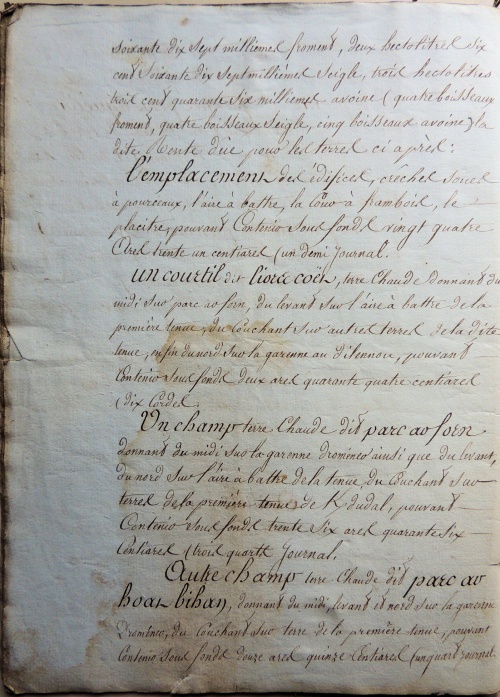 soixante dix sept milliemes froment, deux hectolitres six
cent soixante dix sept milliemes seigle, trois hectolitres
trois cent quarante six milliemes avoine (quatre boisseaux
froment, quatre boisseaux seigle, cinq boisseaux avoine) la
dite, Rente due pour les terres ci après:
l'emplacement des édifices, crêches soues
à pourceaux, l'aire à battre, la cour à frambois, le
placitre, pouvant Contenir sous fonds vingt quatre
ares trente un centiares (un demi Journal.
un courtil dit liorce coët, terre Chaude donnant du
midi sur parc ar forn, du levant sur l'aire à battre de la
première tenue, du Couchant sur autres terres de la dite
tenue, enfin du nord sur la garenne au dilennou, pouvant
Contenir sous fonds deux ares quarante quatre centiares
(dix Cordes.
Un champ terre Chaude dit parc ar forn
donnant du midi sur la garenne dromineo ainsi que du levant,
du nord sur l'aire à battre de la tenue, du Couchant sur
terres de la première tenue de Kdudal, pouvant
Contenir sous fonds trente six ares quarante six
Centiares (trois quarts Journal.
Autre champ terre Chaude dit parc ar
hoat bihan, donnant du midi, levant et nord sur la garenne
Dromineo, du Couchant sur terre de la première tenue, pouvant
Contenir sous fonds douze ares quinze Centiares (un quart Journal.